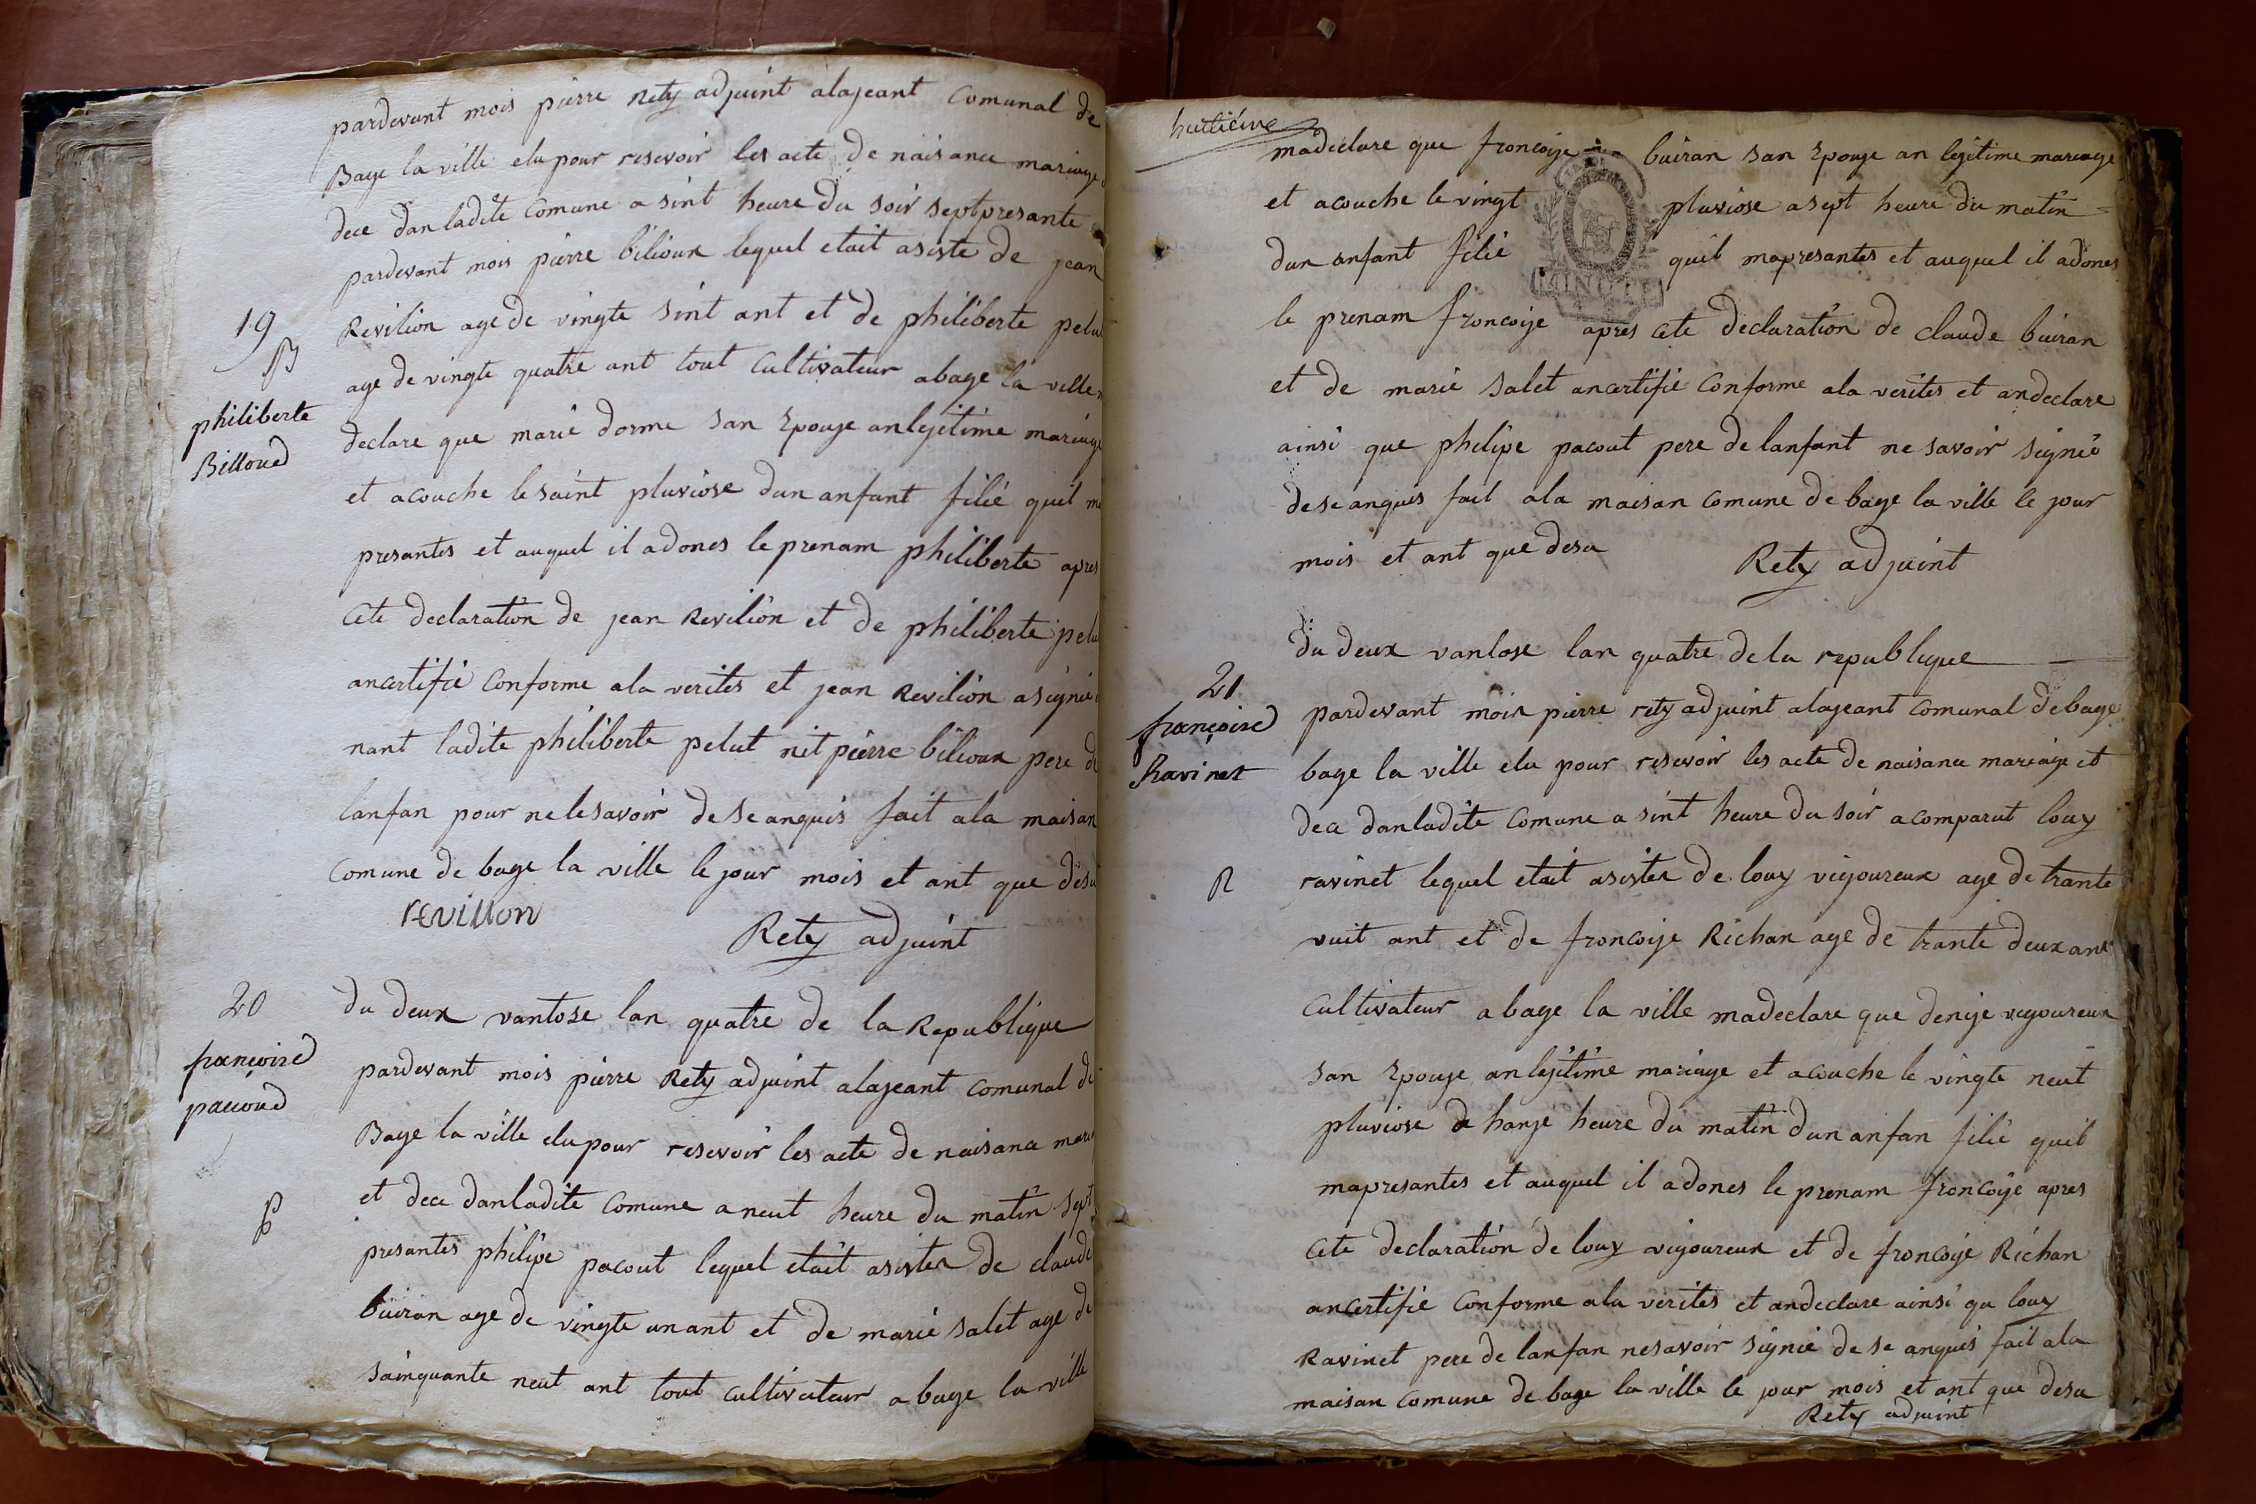 pardevant mois pierre Rety adjuint alajeant Comunal de
Baye la ville elu pour resevoir les acte de naisance mariage
dece dan ladite Comune a sint heure du soir sept presante
pardevant mois pierre bilioux lequel etait asiste de jean
19
Revilion age de vingte sint ant et de philiberte pelu
B
age de vingte quatre ant tout Cultivateur abage la ville
philiberte
Billoud
declare que marie dorme san Epouse anlejitime mariage
et acouche le saint pluviose dun anfant filie quil m
presantes et auquel il adones le prenam philiberte apres
Cete declaration de jean Revilion et de philiberte pelu
ancertifie Conforme ala verites et jean Revilion asignie
nant ladite philiberte pelut nit pierre bilioux pere d
lanfan pour nelesavoir de se anquis fait ala maisan
Comune de bage la ville le jour mois et ant que desu
revillon
Rety adjuint
20
françoise
paccoud
P
du deux vantose lan quatre de la Republique
pardevant mois pierre Rety adjuint alajeant Comunal de
Baye la ville elu pour resevoir les acte de naisance mari
et dece danladite Comune a neut heure du matin sept
presantes philipe pacout lequel etait asister de claude
buiran age de vingte unant et de marie salet age de
sainquante neut ant tout cultivateur abage la ville
huitieme
madeclare que froncoije buiran san Epouge an legitime mariage
et acouche le vingt pluviose a sept heure du matin
dun anfant filie quil mapresantes et auquel il adones
MINUTE
le prenam froncoije apres Cete declaration de claude buiran
et de marie salet ancertifie Conforme ala verites et andeclare
ainsi que philipe pacout pere de lanfant ne savoir signie
de se anquis fait ala maisan comune de bage la ville le jour
mois et ant que desu
Rety adjuint
du deux vanlose lan quatre de la republique
21
françoise
Ravinet
R
pardevant mois pierre rety adjuint alajeant comunal debage
bage la ville elu pour resevoir les acte de naisance mariage et
dece danladite Comune a sint heure du soir acomparut louy
ravinet lequel etait asister de louy vigoureux age de trante
vuit ant et de froncoije Richan age de trante deux ant
Cultivateur abage la ville madeclare que denije vigoureux
san Epouge anlejitime mariage et acouche le vingte neut
pluviose a hanje heure du matin dun anfan filie quil
mapresantes et auquel il adones le prenam froncoije apres
Cete declaration de louy vigoureux et de froncoije Richan
ancertifie Conforme ala verites et andeclare ainsi qu louy
Ravinet pere de lanfan nesavoir signie de se anquis fait ala
maisan comune de bage la ville le jour mois et ant que desu
Rety adjuint